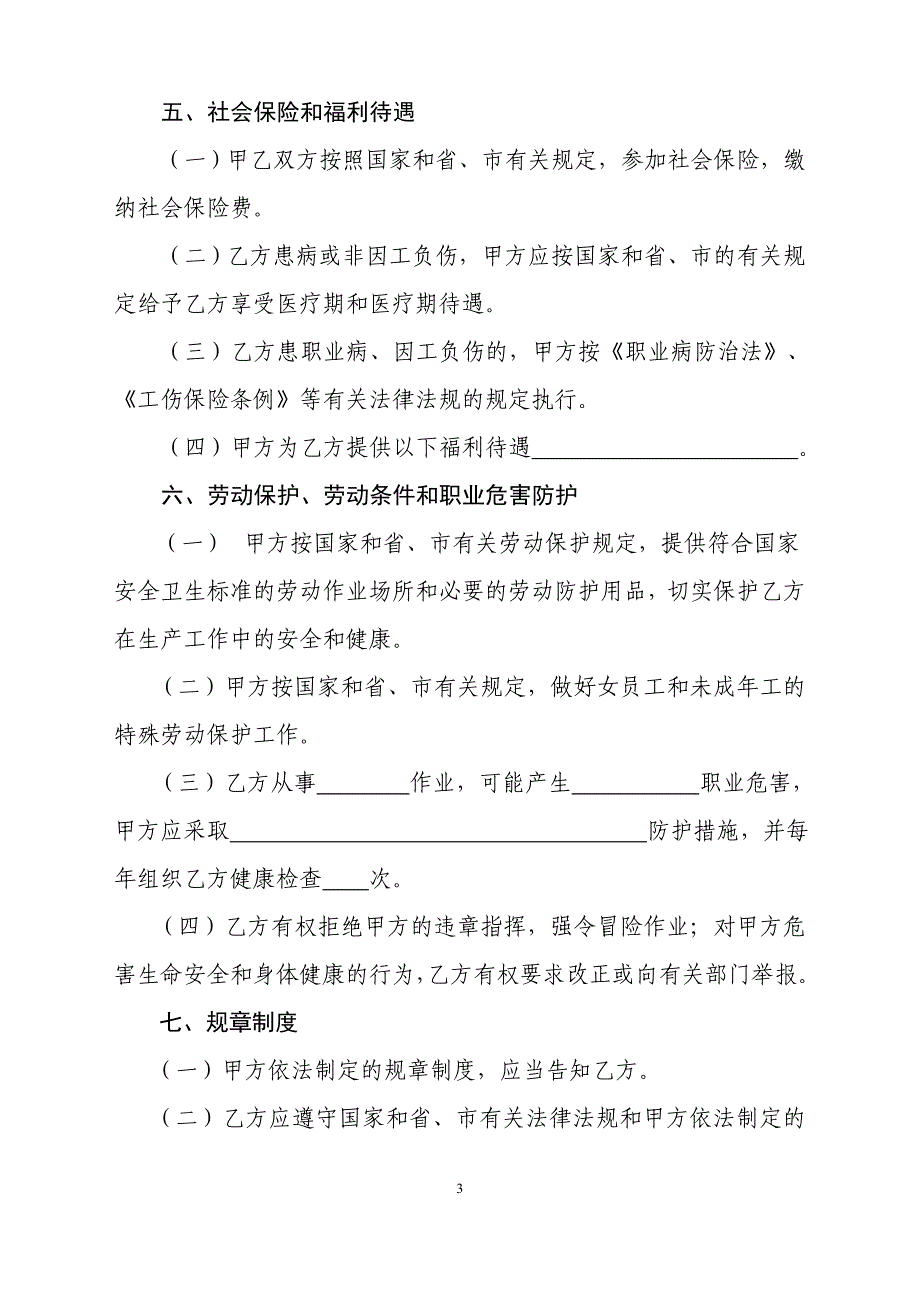 五、社会保险和福利待遇
（一）甲乙双方按照国家和省、市有关规定，参加社会保险，缴
纳社会保险费。
（二）乙方患病或非因工负伤，甲方应按国家和省、市的有关规
定给予乙方享受医疗期和医疗期待遇。
（三）乙方患职业病、因工负伤的，甲方按《职业病防治法》、
《工伤保险条例》等有关法律法规的规定执行。
（四）甲方为乙方提供以下福利待遇_______________________。
六、劳动保护、劳动条件和职业危害防护
（一） 甲方按国家和省、市有关劳动保护规定，提供符合国家
安全卫生标准的劳动作业场所和必要的劳动防护用品，切实保护乙方
在生产工作中的安全和健康。
（二）甲方按国家和省、市有关规定，做好女员工和未成年工的
特殊劳动保护工作。
（三）乙方从事________作业，可能产生___________职业危害，
甲方应采取____________________________________防护措施，并每
年组织乙方健康检查____次。
（四）乙方有权拒绝甲方的违章指挥，强令冒险作业；对甲方危
害生命安全和身体健康的行为，乙方有权要求改正或向有关部门举报。
七、规章制度
（一）甲方依法制定的规章制度，应当告知乙方。
（二）乙方应遵守国家和省、市有关法律法规和甲方依法制定的
3